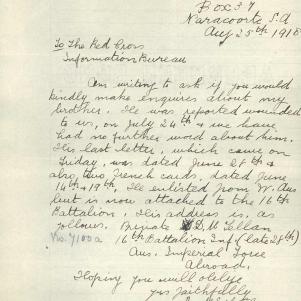 Box 37
Naracoorte S.A
Aug 25th 1918
To The Red Cross
Information Bureau
Am writing to ask if you would
kindly make enquires about my
brother. He was reported wounded
to us, on July 24th & we have
had no further word about him.
His last letter, which came on
Friday, was dated June 28th &
also, two French cards, dated June
14th & 19th. He enlisted from W. Aus
but is now attached to the 16th
Battalion, His address is, as
follows. Private D. M. Lellan
No. 7100a 16th Battalion Inf (late 28th)
Aus. Imperial Force
Abroad.
Hoping you will oblige
yrs faithfully